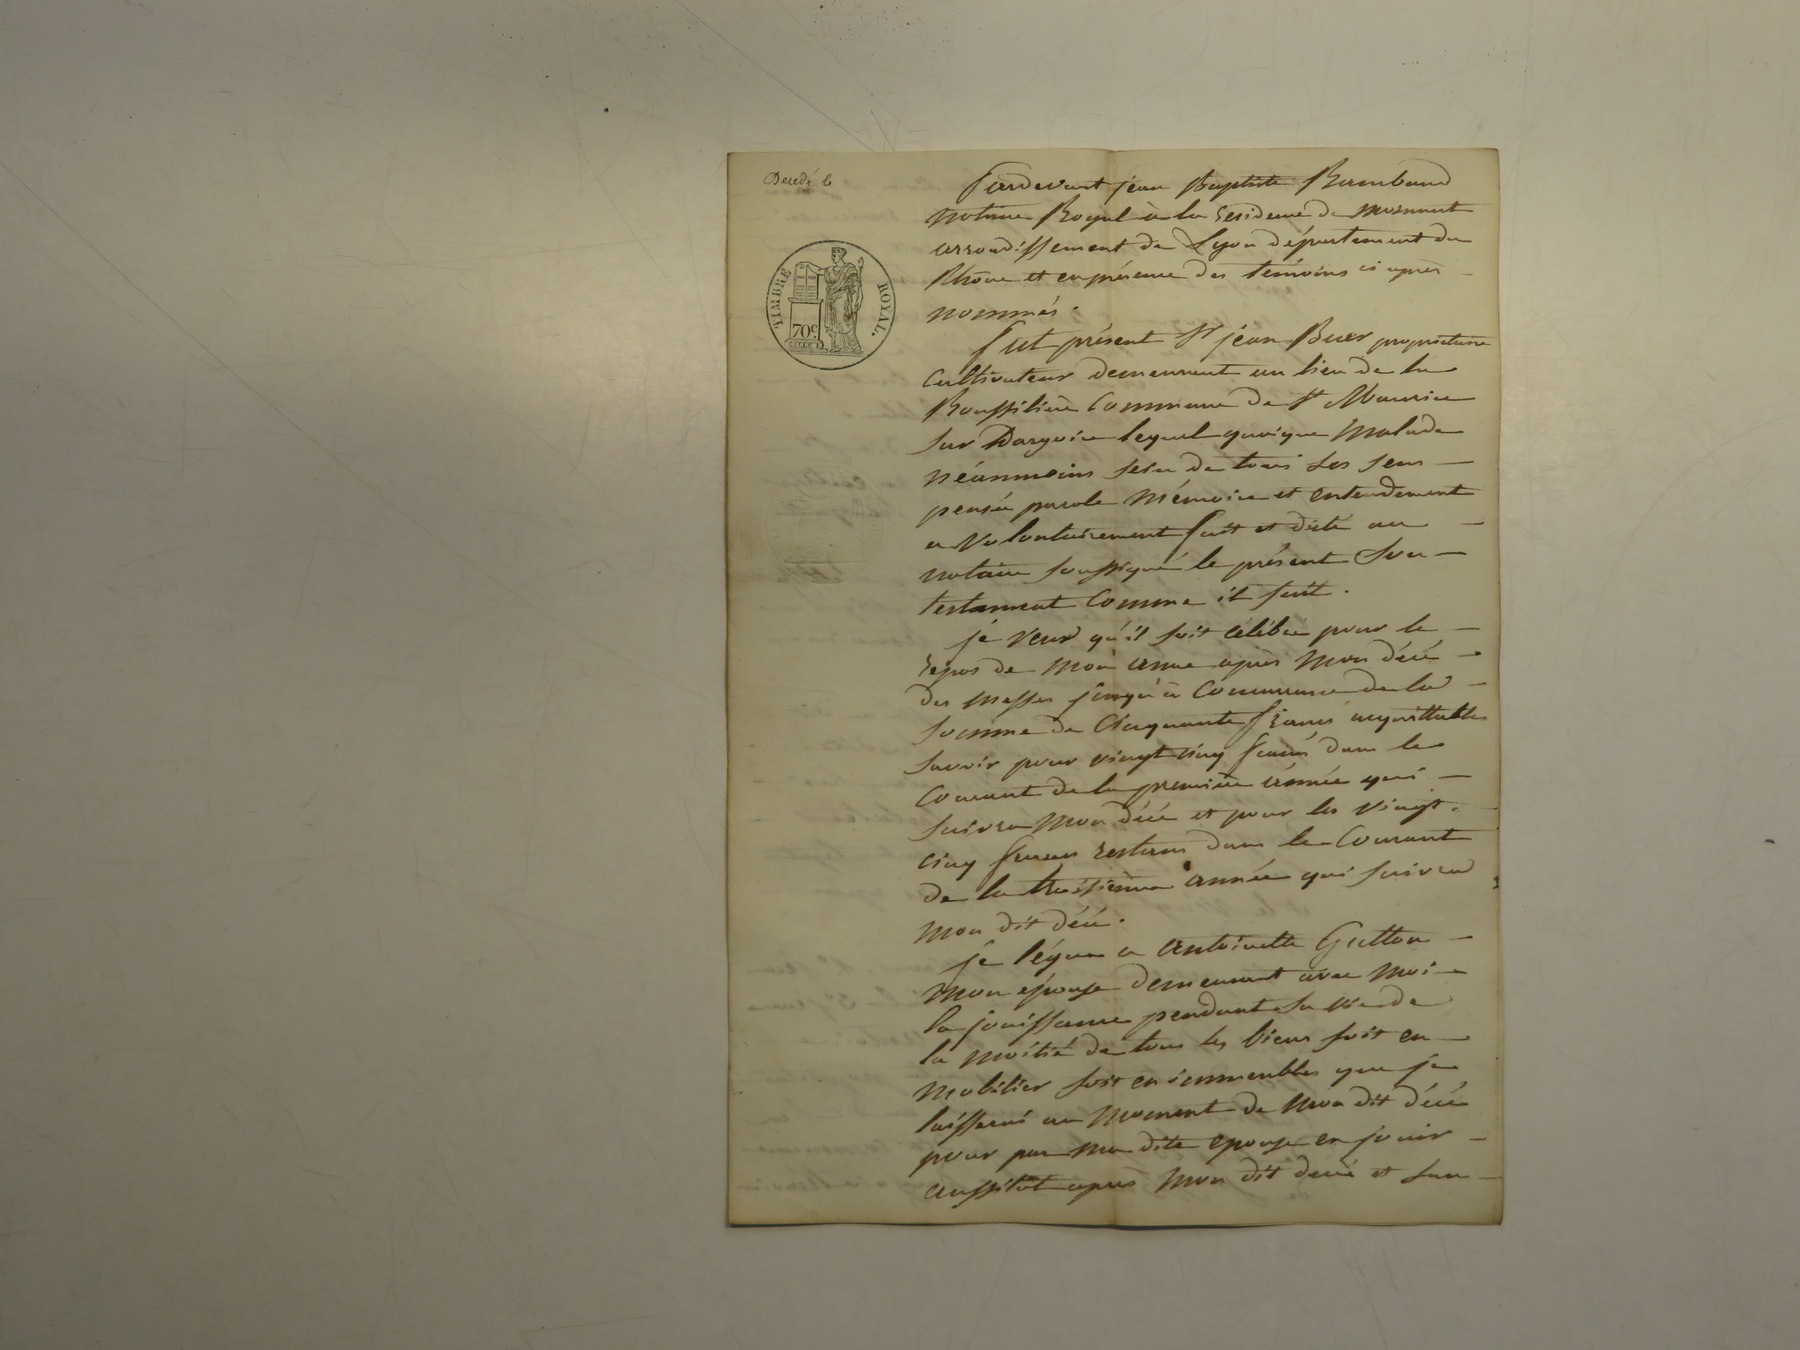 Decedé le
TIMBRE ROYAL.
70c.
Pardevant jean Baptiste Rambaud
notaire Royal à la residence de mornant
arrondissement de Lyon département du
Rhône et en présence des témoins ci après
nommés.
fut présent Sr jean Buer propriétaire
Cultivateur demeurant au lieu de la
Roussilière Commune de St Maurice
sur Dargoire lequel quoique malade
néanmoins sain de tous ses sens
pensée parole mémoire et entendement
a volontairement fait et dicté au
notaire soussigné le présent son
testament Comme il suit.
je veux qu'il soit célébré pour le
repos de mon ame après mon décé
des messes jusqu'à Concurrence de la
somme de Cinquante francs acquittables
savoir pour vingt cinq francs dans le
Courant de la première année qui
suivra mon décé et pour les vingt
cinq francs restans dans le Courant
de la troisième année qui suivra
mon dit décé.
je légue a antoinette Gutton
mon épouse demeurant avec moi
la jouissance pendant sa vie de
la moitié de tous les biens soit en
mobilier soit en immeubles que je
laisserai au moment de mon dit décé
pour par ma dite epouse en jouir
aussitôt après mon dit decé et sans